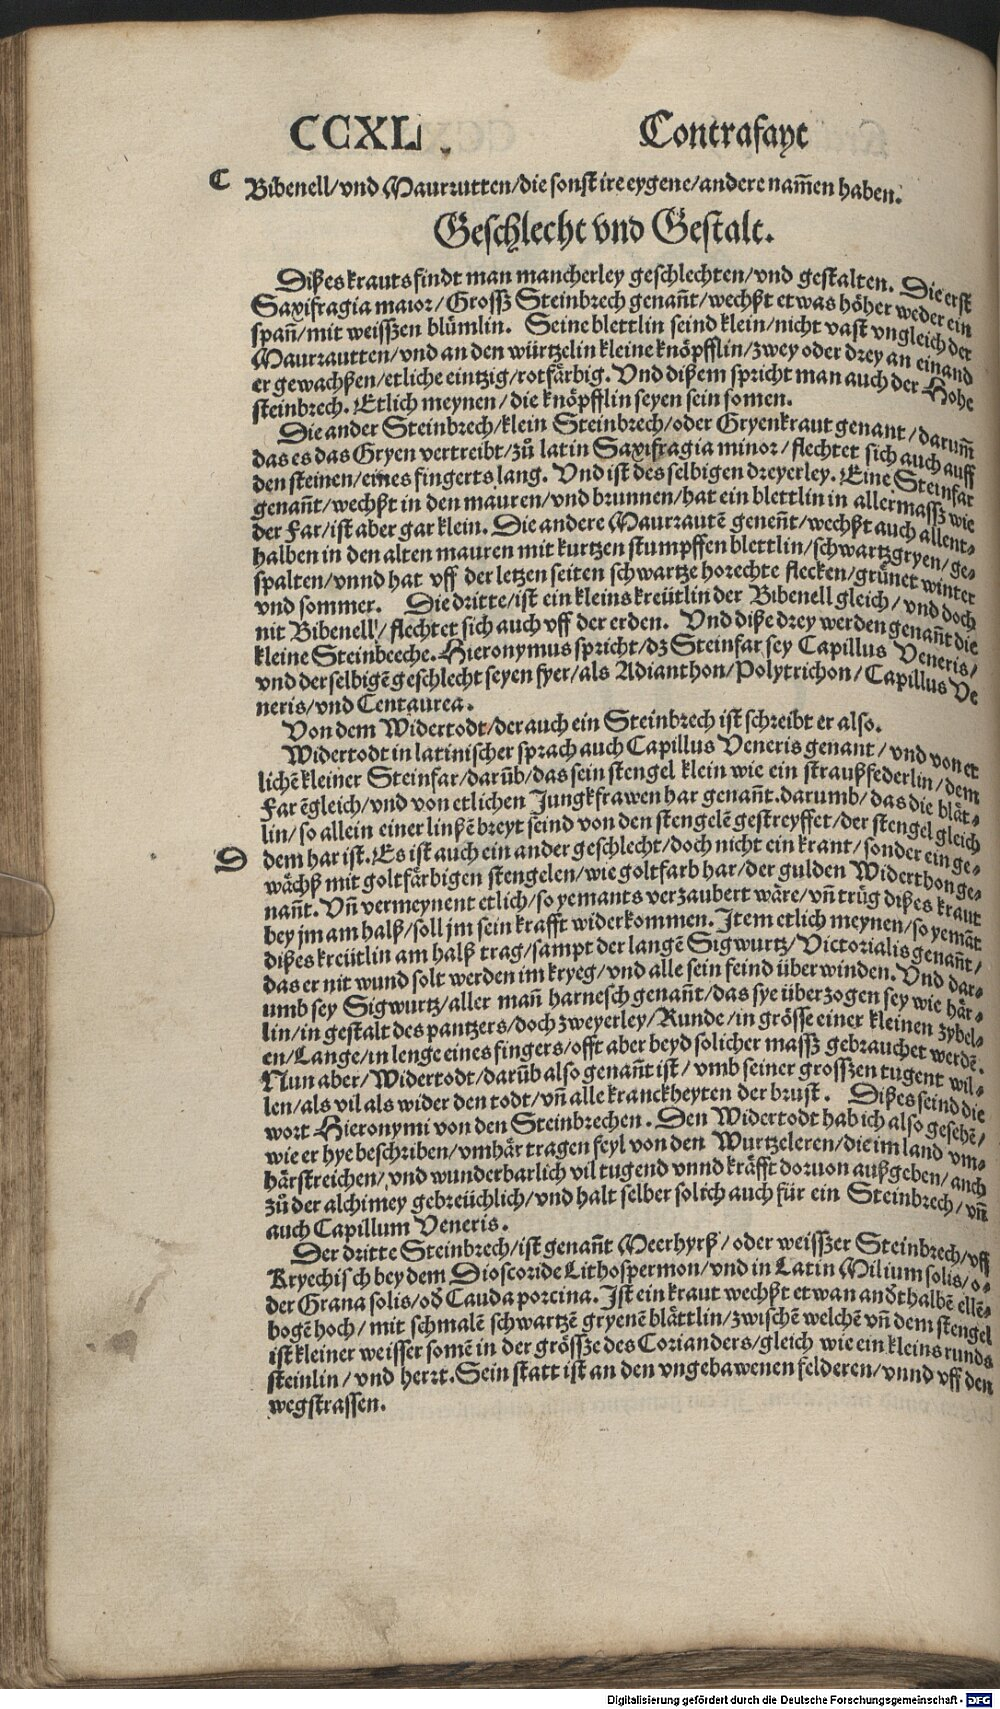 CCXL. Contrafayt
C Bibenell/vnd Maurrutten/die sonst ire eygene/andere nam̃en haben.
Geschlecht vnd Gestalt.
Dißes krauts findt man mancherley geschlechten/vnd gestalten. Die erst
Saxifragia maior/Grossz Steinbrech genañt/wechßt etwas höher weder ein
spañ/mit weisszen blůmlin. Seine blettlin seind klein/nicht vast vngleich der
Maurrautten/vnd an den würtzelin kleine knöpfflin/zwey oder drey an einand
er gewachßen/etliche eintzig/rotfärbig. Vnd dißem spricht man auch der Hohe
steinbrech. Etlich meynen/die knöpfflin seyen sein somen.
Die ander Steinbrech/klein Steinbrech/oder Gryenkraut genant/darum̃
das es das Gryen vertreibt/zů latin Saxifragia minor/flechtet sich auch auff
den steinen/eines fingerts lang. Vnd ist desselbigen dreyerley. Eine Steinfar
genañt/wechßt in den mauren/vnd brunnen/hat ein blettlin in allermassz wie
der Far/ist aber gar klein. Die andere Maurrautē geneñt/wechßt auch allent⸗
halben in den alten mauren mit kurtzen stumpffen blettlin/schwartzgryen/ge⸗
spalten/vnnd hat vff der letzen seiten schwartze horechte flecken/grůnet winter
vnd sommer. Die dritte/ist ein kleins kreütlin der Bibenell gleich/vnd doch
nit Bibenell/flechtet sich auch vff der erden. Vnd diße drey werden genañt die
kleine Steinbeeche. Hieronymus spricht/dz Steinfar sey Capillus Veneris/
vnd derselbigē geschlecht seyen fyer/als Adianthon/Polytrichon/Capillus Ve
neris/vnd Centaurea.
Von dem Widertodt/der auch ein Steinbrech ist schreibt er also.
Widertodt in latinischer sprach auch Capillus Veneris genant/vnd von et
lichē kleiner Steinfar/darūb/das sein stengel klein wie ein straußfederlin/dem
Far ēgleich/vnd von etlichen Jungkfrawen har genañt.darumb/das die blät⸗
lin/so allein einer linßē breyt seind von den stengelē gestreyffet/der stengel gleich
D dem har ist. Es ist auch ein ander geschlecht/doch nicht ein krant/sonder ein ge⸗
wächß mit goltfärbigen stengelen/wie goltfarb har/der gulden Widerthon ge⸗
nañt. Vñ vermeynent etlich/so yemants verzaubert wäre/vñ trüg dißes kraut
bey jm am halß/soll jm sein krafft widerkommen. Item etlich meynen/so yemāt
dißes kreütlin am halß trag/sampt der langē Sigwurtz/Victorialis genañt/
das er nit wund solt werden im kryeg/vnd alle sein feind überwinden. Vnd dar⸗
umb sey Sigwurtz/aller mañ harnesch genañt/das sye überzogen sey wie här⸗
lin/in gestalt des pantzers/doch zweyerley/Runde/in grösse einer kleinen zybel⸗
en/Lange/in lenge eines fingers/offt aber beyd solicher massz gebrauchet werdē.
Nun aber/Widertodt/darūb also genañt ist/vmb seiner grosszen tugent wil⸗
len/als vil als wider den todt/vñ alle kranckheyten der brust. Dißes seind die
wort Hieronymi von den Steinbrechen. Den Widertodt hab ich also gesehē/
wie er hye beschriben/vmhär tragen feyl von den Wurtzeleren/die im land vm⸗
härstreichen/vnd wunderbarlich vil tugend vnnd kräfft doruon außgeben/anch
zů der alchimey gebreüchlich/vnd halt selber solich auch für ein Steinbrech/vñ
auch Capillum Veneris.
Der dritte Steinbrech/ist genañt Meerhyrß/oder weisszer Steinbrech/vff
Kryechisch bey dem Dioscoride Lithospermon/vnd in Latin Milium solis/o⸗
der Grana solis/oď Cauda porcina. Ist ein kraut wechßt etwan anďthalbē ellē⸗
bogē hoch/mit schmalē schwartzē gryenē blättlin/zwischē welchē vñ dem stengel
ist kleiner weisser somē in der grössze des Corianders/gleich wie ein kleins runds
steinlin/vnd herrt. Sein statt ist an den vngebawenen felderen/vnnd vff den
wegstrassen.
Digitalisierung gefördert durch die Deutsche Forschungsgemeinschaft - DFG